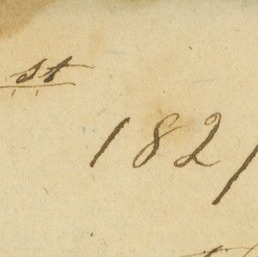 st
1821